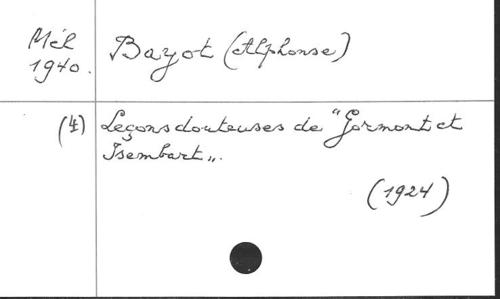 Mél Bayot (Alphonse)
1940.
(4) Leçons douteuses de "Gormont et
Isembart".
(1924)